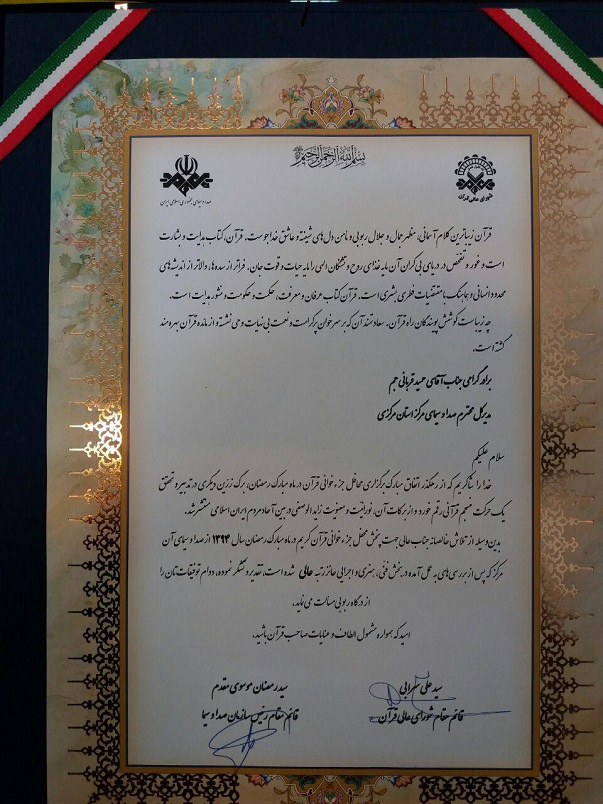 بسم الله الرحمن الرحیم
صدا و سیمای جمهوری اسلامی ایران
شورای عالی قرآن
قرآن زیباترین کلام آسمانی، مظهر جمال و جلال ربوبی و مامن دل‌های شیفته و عاشق خداجوست. قرآن، کتاب هدایت و بشارت
است و غور و تفحص در دریای بی‌کران آن مایه غذای روح و تشنگان الهی را مایه حیات و قوت جان. فراتر از سده‌ها، والاتر از اندیشه‌های
محدود انسانی و هماهنگ با مقتضیات فطری بشری است. قرآن کتاب عرفان و معرفت، حکمت و حکومت و منشور هدایت است.
چه زیباست کوشش پویندگان راه قرآن. سعادتمند آن که بر سر خوان پرکرامت و نعمت بی‌نهایت وحی نشسته و از مائده قرآن بهره‌مند
گشته است.
برادر گرامی جناب آقای حمید قربانی جم
مدیرکل محترم صدا و سیمای مرکز استان مرکزی
سلام علیکم
خدا را شاکریم که از رهگذر اتفاق مبارک برگزاری محافل جزءخوانی قرآن در ماه مبارک رمضان، برگ زرین دیگری در تدبیر و تحقق
یک حرکت منسجم قرآنی رقم خورد و از برکات آن، نورانیت و معنویت زایدالوصفی در بین آحاد مردم ایران اسلامی منتشر شد.
بدین وسیله از تلاش خالصانه جناب عالی جهت پخش محفل جزءخوانی قرآن کریم در ماه مبارک رمضان سال ۱۳۹۴ از صدا و سیمای آن
مرکز که پس از بررسی‌های به عمل آمده در بخش فنی، هنری و اجرایی حائز رتبه عالی شده است، تقدیر و تشکر نموده، دوام توفیقاتتان را
از درگاه ربوبی مسالت می‌نماید.
امید که همواره مشمول الطاف و عنایات صاحب قرآن باشید.
سید علی سرابی
قائم مقام شورای عالی قرآن
سید رمضان موسوی مقدم
قائم مقام رئیس سازمان صدا و سیما